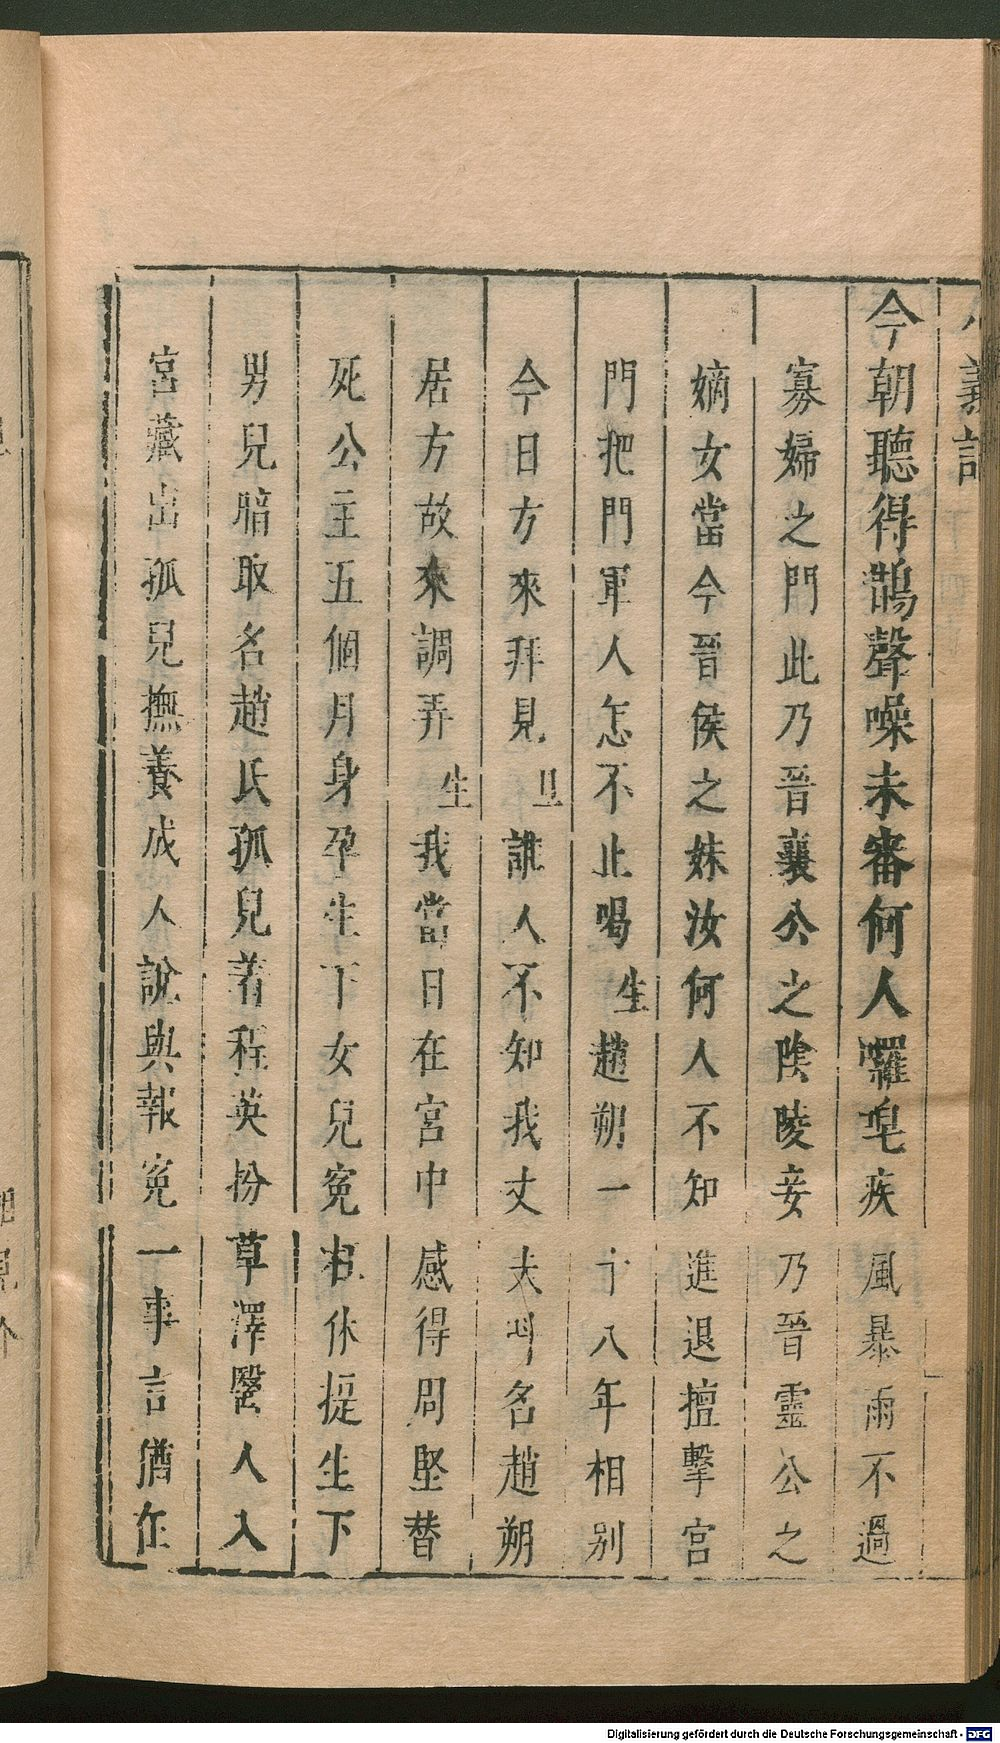 八義記
今朝聽得鵲聲噪未審何人囉唣疾風暴雨不過
寡婦之門此乃晉襄公之陰陵妾乃晉靈公之
嫡女當今晉侯之妹汝何人不知進退擅擊宮
門把門軍人怎不止喝生趙朔一十八年相別
今日方來拜見旦誰人不知我丈夫叫名趙朔
居方故來調弄生我當日在宮中感得周堅替
死公主五個月身孕生下女兒寃枉休提生下
男兒暗取名趙氏孤兒着程英扮草澤醫人入
宮藏出孤兒撫養成人說與報寃一事言猶在
Digitalisierung gefördert durch die Deutsche Forschungsgemeinschaft - DFG